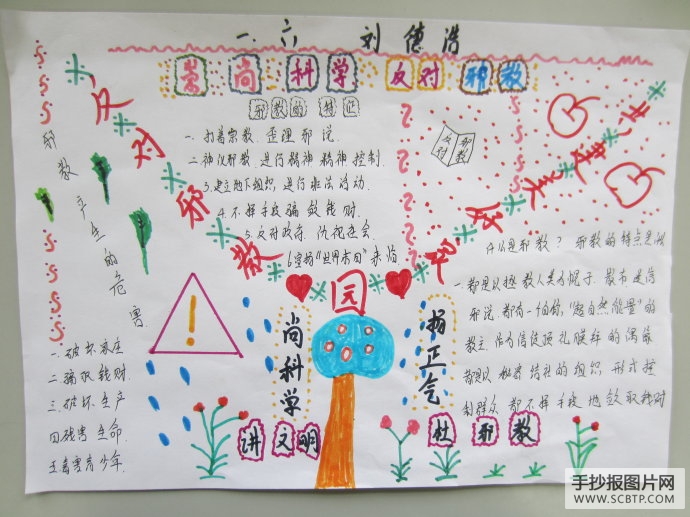 一.六 刘德浩
崇尚科学 反对邪教
邪教的特征
一.打着宗教.歪理邪说.
二神汉邪教.进行精神精神控制.
3.建立地下组织,进行非法活动.
4.不择手段骗敛钱财.
5.反对政府.仇视社会
6宣扬“世界末日”来临
反对邪教
反对 邪教
园
邪教产生的危害
一.破坏家庭
二骗取钱财.
三.破坏生产
四残害生命.
五毒害青少年.
尚科学
讲文明
扬正气
杜邪教
什么是邪教?邪教的特点是啥
一.都是以拯救人类为幌子.散布迷信
邪说.都有一自称“超自然能量”的
教主作为信徒顶礼膜拜的偶像
都以秘密结社的组织形式控
制群众都不择手段地敛取钱财
手抄报图片网
WWW.SCBTP.COM